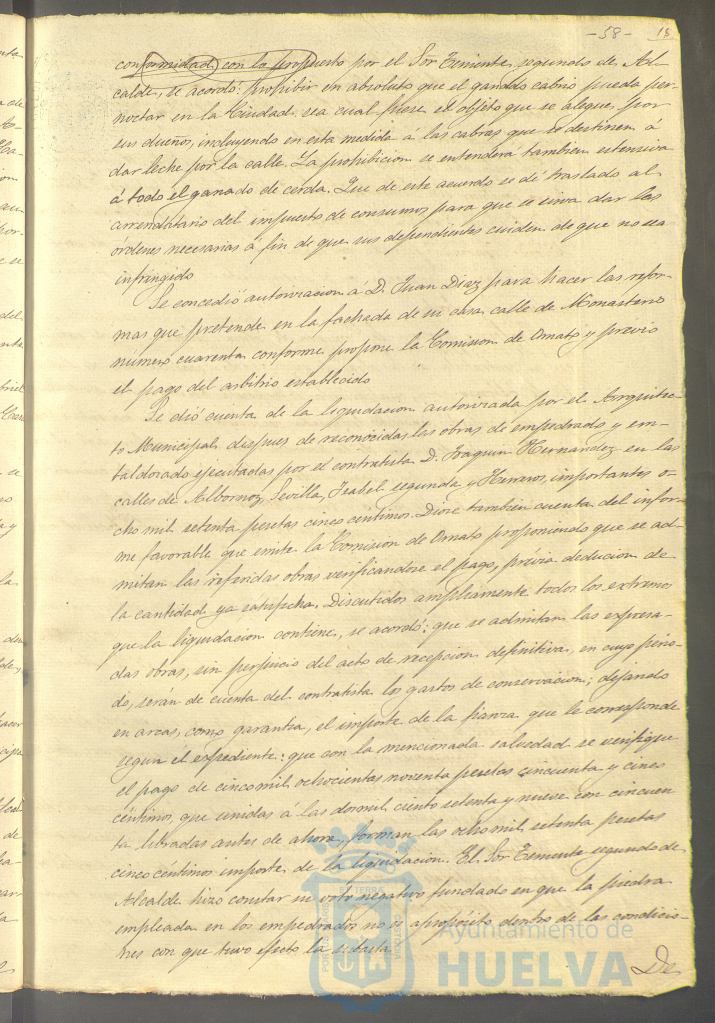 -58- 18
conformidad con lo propuesto por el Sor Teniente segundo de Al-
calde, se acordó: prohibir en absoluto que el ganado cabrio pueda per-
noctar en la Ciudad sea cual fuese el objeto que se alegue, por
sus dueños, incluyendo en esta medida á las cabras que se destinen á
dar leche por la calle. La prohibicion se entenderá tambien estensiva
á todo el ganado de cerda. Que de este acuerdo se dé traslado al
arrendatario del impuesto de consumos para que se sirva dar las
órdenes necesarias á fin de que sus dependientes cuiden de que no sea
infringido
Se concedió autorizacion á D. Juan Diaz para hacer las refor-
mas que pretende en la fachada de su casa calle de Monasterio
número cuarenta conforme propone la Comision de Ornato y previo
el pago del arbitrio establecido
Se dió cuenta de la liquidacion autorizada por el Arquitec-
to Municipal despues de reconocidas las obras de empedrado y em-
baldosado ejecutadas por el contratista D. Joaquin Hernandez en las
calles de Albornoz, Sevilla, Isabel segunda y Herreros, importantes o-
cho mil setenta pesetas cinco céntimos. Diose tambien cuenta del infor-
me favorable que emite la Comision de Ornato proponiendo que se ad-
mitan las referidas obras verificandose el pago, prévia deduccion de
la cantidad ya satisfecha. Discutidos ampliamente todos los extremos
que la liquidacion contiene, se acordó: que se admitan las expresa-
das obras, sin perjuicio del acto de recepcion definitiva, en cuyo perio-
do, serán de cuenta del contratista los gastos de conservacion; dejando
en arcas, como garantia, el importe de la fianza que le corresponde
segun el expediente: que con la mencionada salvedad se verifique
el pago de cinco mil ochocientas noventa pesetas cincuenta y cinco
céntimos, que unidas á las dos mil ciento setenta y nueve con cincuen
ta libradas antes de ahora, forman las ocho mil setenta pesetas
cinco céntimos importe de la liquidacion. El Sor Teniente segundo de
Alcalde hizo constar su voto negativo fundado en que la piedra
empleada en los empedrados no es apropósito dentro de las condicio-
nes con que tuvo efecto la subasta.
De
Ayuntamiento de
HUELVA